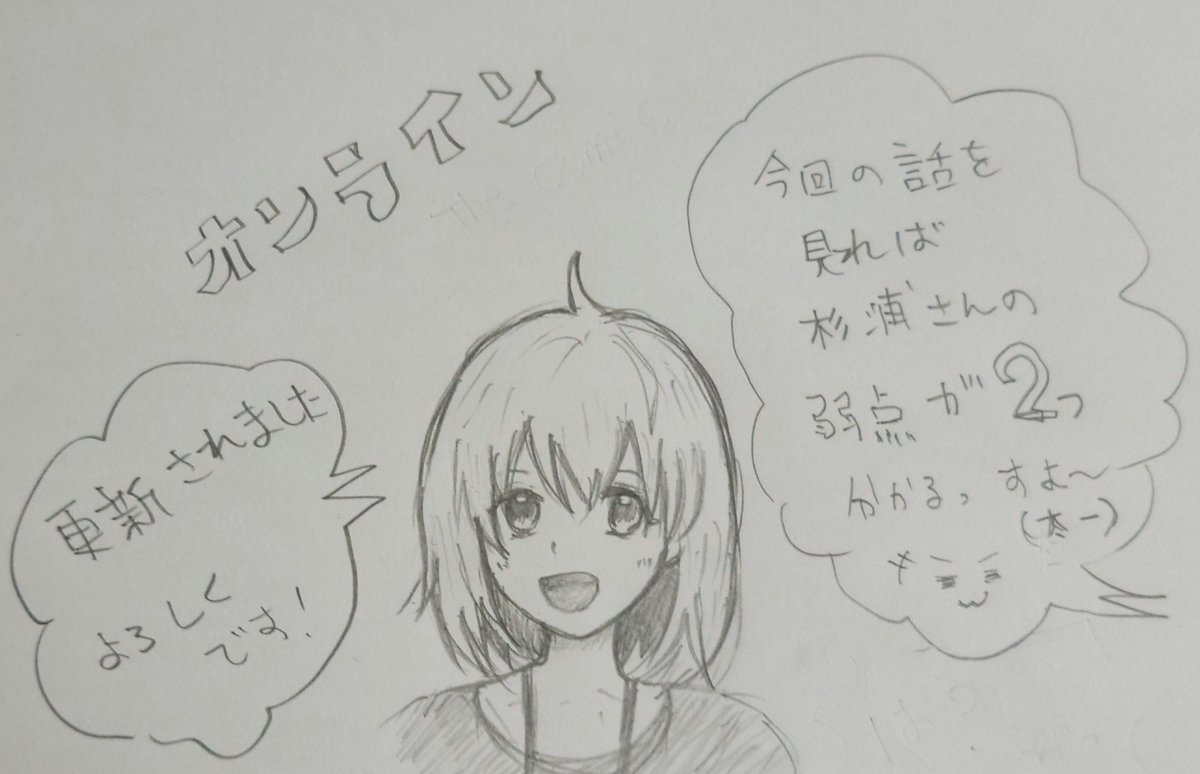 オンライン
更新されました
よろしく
です!
今回の話を
見れば
杉浦さんの
弱点が2つ
分かるっすよ〜
(太一)